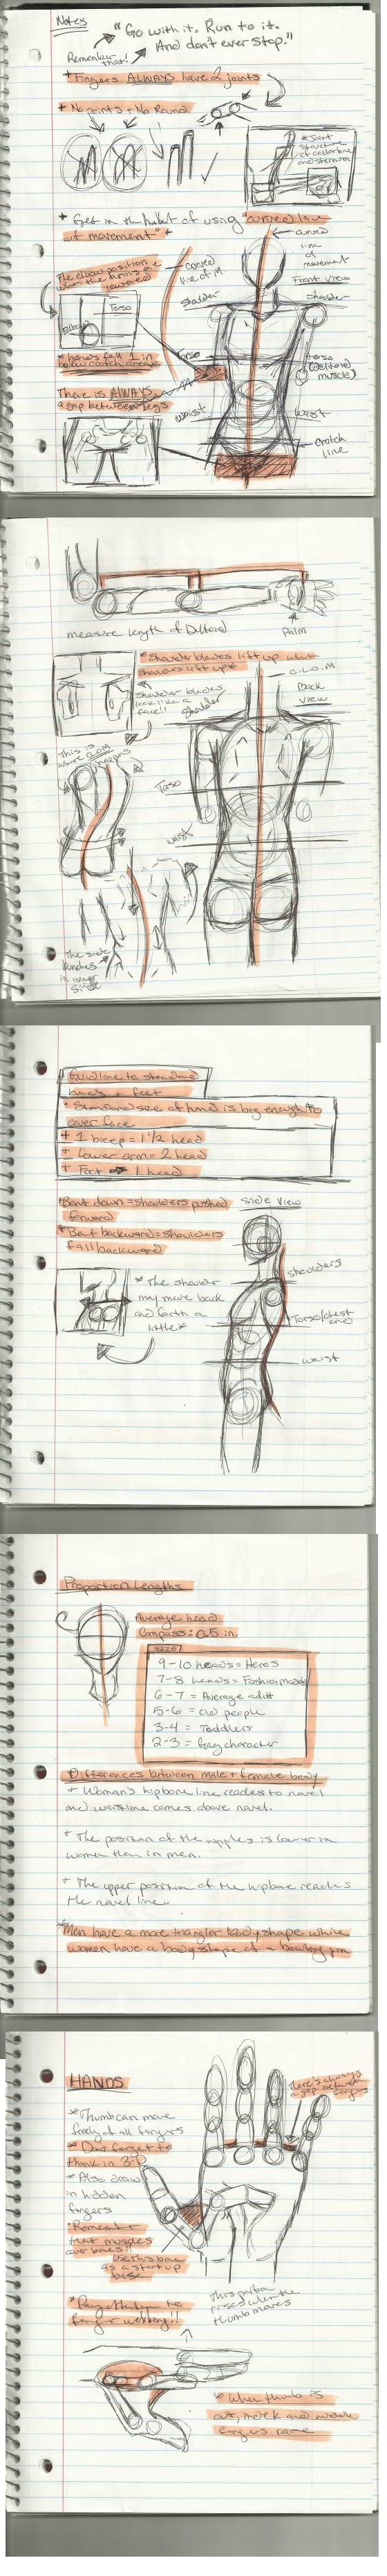 Notes
"Go with it. Run to it.
And don't ever stop."
Remember
that!
+ Fingers ALWAYS have 2 joints
+ No points + No Round
* Joint
structure
of collarbone
and sternum
+ Get in the habit of using "curved line
of movement" +
curved
line of
movement
Front View
The elbow position is
when the arm is
lowered
curved
line of M
Shoulder
shoulder
Torso
Elbow
* hands fall 1 in
below crotch always
Torso
torso
(deltoid
muscle)
There is ALWAYS
a gap between legs
waist
waist
crotch
line
measure length of Deltoid
Palm
* Shoulder blades lift up when
shoulders lift up *
C.L.O.M
Back
View
Shoulder blades
look like a
face!!
Shoulder
This is
where
Torso
waist
The side
bunches
in inner
side
Guideline to standard
hands + feet
* Standard size of hand is big enough to
cover face
+ 1 bicep = 1 1/2 head
+ Lower arm = 2 head
+ Foot → 1 head
*Bent down = shoulders pushed
forward
*Bent backward = shoulders
fall backward
side view
* The shoulder
may move back
and forth a
little *
shoulders
Torso/chest
end
waist
Proportion Lengths
Average head
Compass: 0.5 in.
SIZE
9-10 heads = Heros
7-8 heads = Fashion models
6-7 = Average adult
5-6 = old people
3-4 = Toddlers
2-3 = Gag character
Differences between male + female body
+ Woman's hipbone line reaches to navel
and waistline comes above navel.
+ The position of the nipples is lower in
women then in men.
+ The upper position of the hipbone reaches
the navel line.
*Men have a more trangler body shape while
women have a body shape of a bowling pin
HANDS
* Thumb can move
freely of all fingers
* Don't forget to
think in 3-D
* Also draw
in hidden
fingers
* Remember
that muscles
over bones!!
Use this bone
as a start up
base
There's always
a gap between
fingers
* Pay attention to
finger webbing!!
This portion
rises when the
thumb moves
* When thumb is
out, index and middle
fingers raise